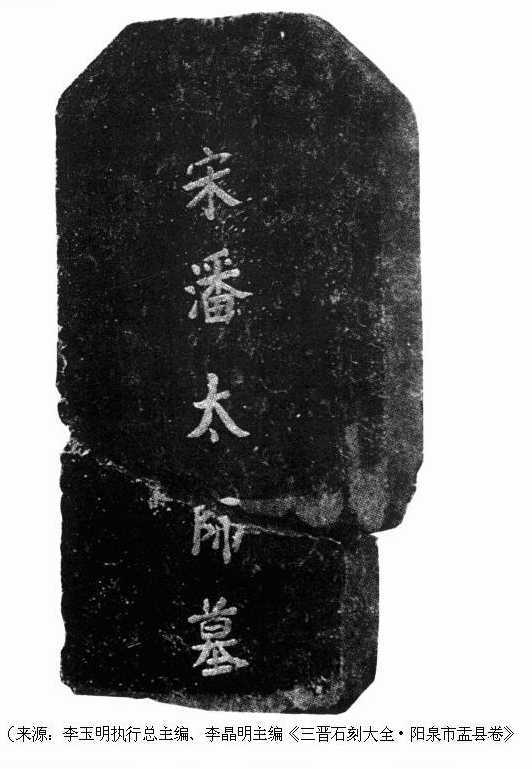 宋潘太師墓
（来源：李玉明执行总主编、李晶明主编《三晋石刻大全·阳泉市盂县卷》